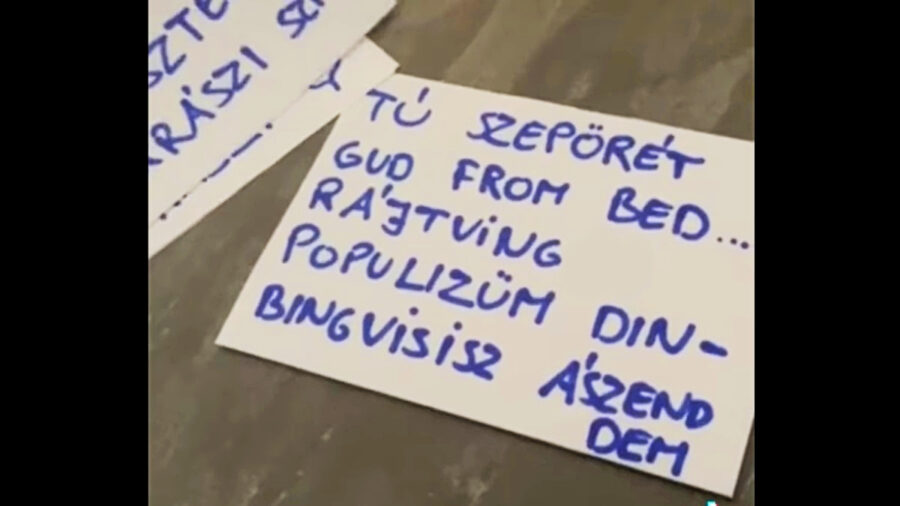 SZTE
RÁSZI SZ
TÚ SZEPÖRÉT
GUD FROM BED...
RÁJTVING
POPULIZÜM DIN-
BINGVISISZ ÁSZEND
DEM